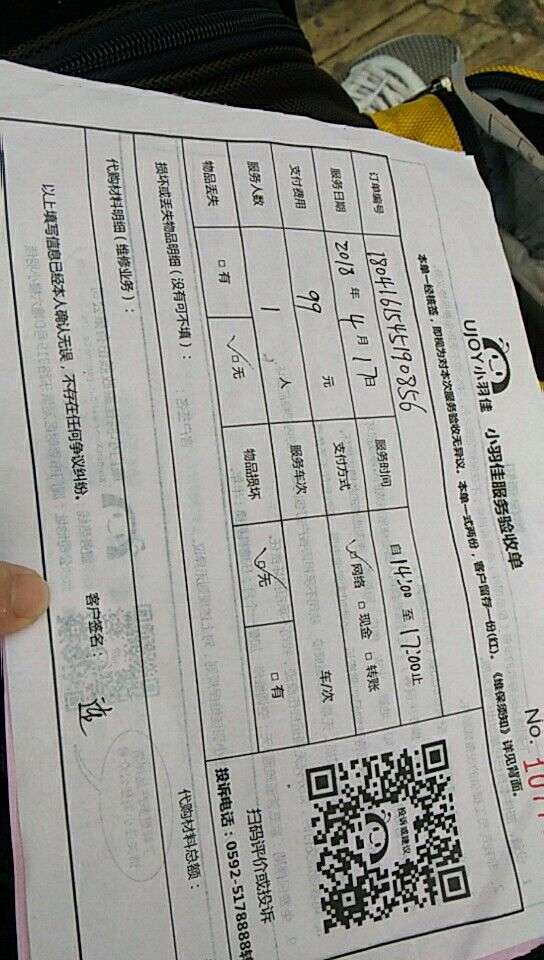 UJOY小羽佳 小羽佳服务验收单
No. 1077
本单一经核签，即视为对本次服务验收无异议。本单一式两份，客户留存一份(红)。《维保须知》详见背面。
订单编号 1804161545190856 服务时间 自 14:00 至 17:00 止
服务日期 2018 年 4 月 17 日 支付方式 ☑网络 □现金 □转账
支付费用 99 元 服务车次 车/次
服务人数 1 人 物品损坏 ☑无 □有
物品丢失 □有 ☑无
投诉或建议
扫码评价或投诉
投诉电话：0592-5178888转
损坏或丢失物品明细（没有可不填）：
代购材料明细（维修业务）： 代购材料总额：
以上填写信息已经本人确认无误，不存在任何争议纠纷。 客户签名：